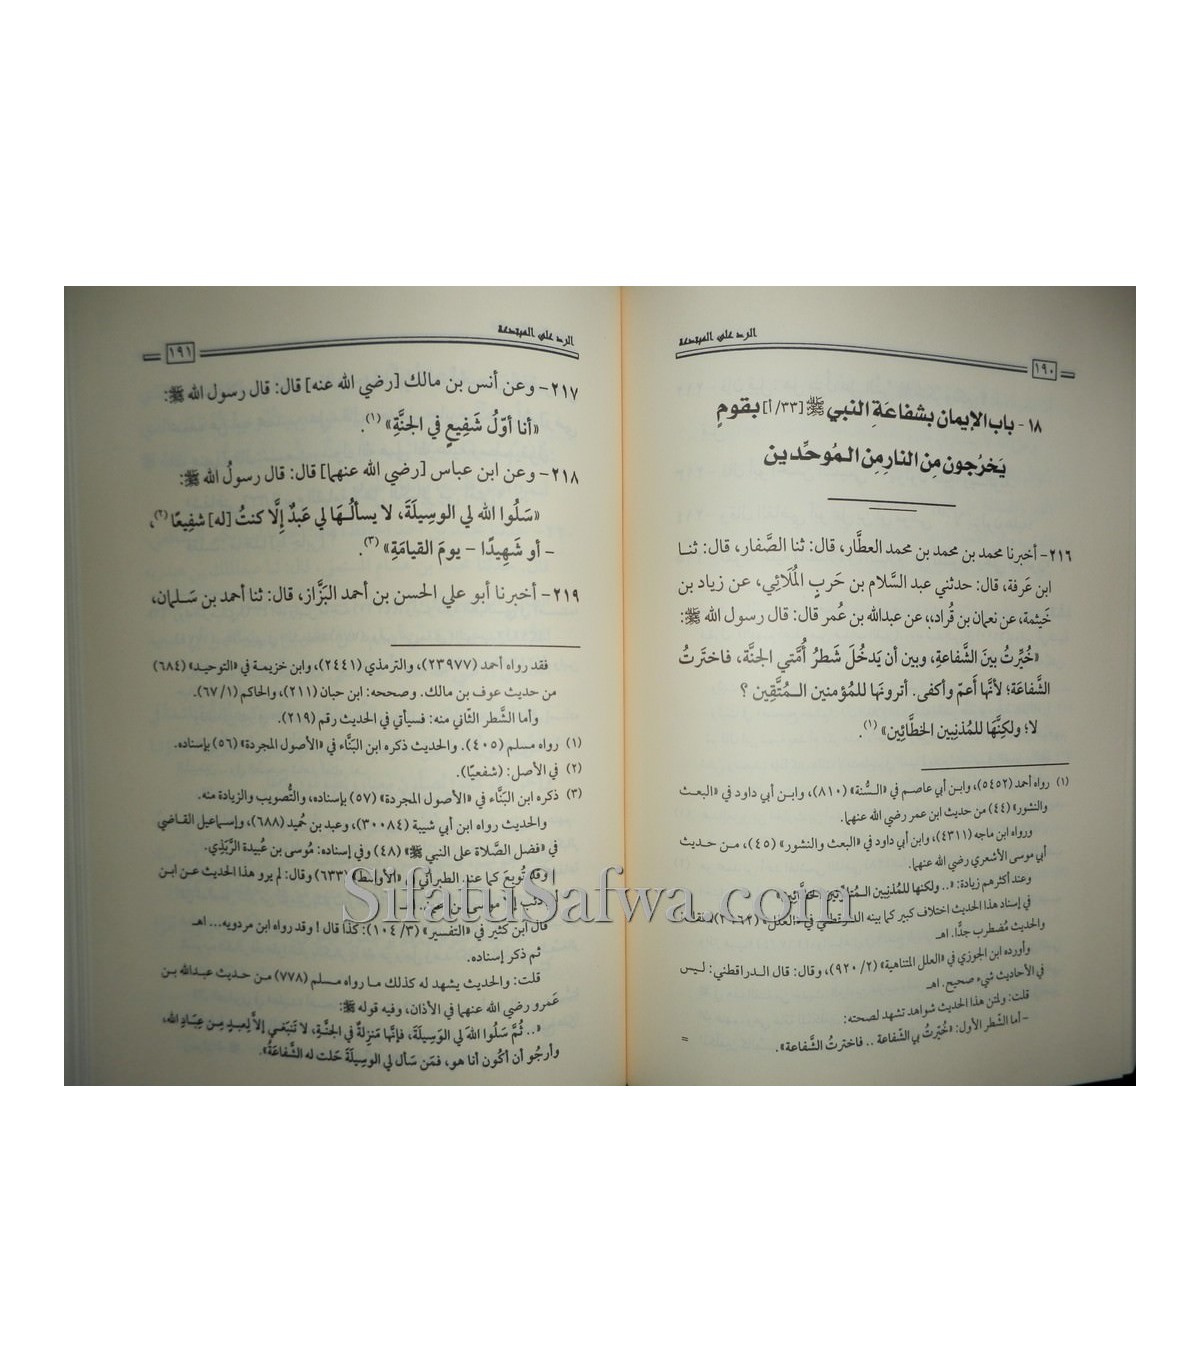 الرد على المبتدعة
١٩٠
١٨- باب الإيمان بشفاعَةِ النبي ﷺ [٣٣/أ] بقومٍ
يَخرُجون مِن النارِ مِن المُوحِّدين
٢١٦- أخبرنا محمد بن محمد بن محمد العطَّار، قال: ثنا الصَّفار، قال: ثنـا
ابن عَرفة، قال: حدثني عبد السَّلام بن حَربٍ المُلَائِي، عن زياد بن
خَيثمة، عن نعمان بن قُراد، عن عبدالله بن عُمر قال: قال رسول الله ﷺ:
«خُيِّرتُ بينَ الشَّفاعةِ، وبين أن يَدخُلَ شَطرُ أُمَّتي الجنَّة، فاخترَتُ
الشَّفاعَة؛ لأنَّها أعمّ وأكفى. أترونَها للمُؤمنين الـمُتَّقِين ؟
لا؛ ولكِنَّهَا للمُذنِبِين الخطَّائِين» (١).
(١) رواه أحمد (٥٤٥٢)، وابن أبي عاصم في «السُّنة» (٨١٠)، وابـن أبي داود في «البعث
والنشور» (٤٤) من حديث ابن عمر رضي الله عنهما.
ورواه ابن ماجه (٤٣١١)، وابن أبي داود في «البعث والنشور» (٤٥)، مـن حـديث
أبي موسى الأشعري رضي الله عنهما.
وعند أكثرهم زيادة: «.. ولكنها للمُذنِبِين المُتلوِّثين الخطَّائين».
في إسناد هذا الحديث اختلاف كبير كما بينه الدارقطني في «العلل»
والحديث مُضطرب جدًّا. اهـ
وأورده ابن الجوزي في «العلل المتناهية» (٩٢٠/٢)، وقال: قال الـدراقطني: لـيس
في الأحاديث شيء صحيح. اهـ
قلت: ولمتن هذا الحديث شواهد تشهد لصحته:
- أما الشَّطر الأول: «خُيِّرتُ بي الشَّفاعة .. فاخترتُ الشَّفاعة».
=
الرد على المبتدعة
١٩١
٢١٧- وعن أنس بن مالك [رضي الله عنه] قال: قال رسول الله ﷺ:
«أنا أوّلُ شَفِيعٍ في الجنَّةِ» (١).
٢١٨- وعن ابن عباس [رضي الله عنهما] قال: قال رسولُ الله ﷺ:
«سَلُوا الله لي الوسِيلَةَ، لا يسألُـهَا لي عَبدٌ إلَّا كنتُ [له] شفِيعًا (٢)،
- أو شَهِيدًا - يومَ القيامَةِ» (٣).
٢١٩- أخبرنا أبو علي الحسن بن أحمد البَزَّاز، قال: ثنا أحمد بن سَـلمان،
فقد رواه أحمد (٢٣٩٧٧)، والترمذي (٢٤٤١)، وابن خزيمة في «التوحيـد» (٦٨٤)
من حديث عوف بن مالك. وصححه: ابن حبان (٢١١)، والحاكم (٦٧/١).
وأما الشَّطر الثَّاني منه: فسيأتي في الحديث رقم (٢١٩).
(١) رواه مسلم (٤٠٥). والحديث ذكره ابن البَنَّاء في «الأصول المجردة» (٥٦) بإسناده.
(٢) في الأصل: (شفعيًا).
(٣) ذكره ابن البَنَّاء في «الأصول المجردة» (٥٧) بإسناده، والتَّصويب والزيادة منه.
والحديث رواه ابن أبي شيبة (٣٠٠٨٤)، وعبد بن حُميد (٦٨٨)، وإسـماعيل القـاضي
في «فضل الصَّلاة على النبي ﷺ» (٤٨) وفي إسناده: مُوسى بن عُبيدة الرَّبَذِي.
وقد تُوبِعَ كما عند الطبراني في «الأوسط» (٦٣٣) وقال: لم يرو هذا الحديث عـن ابـن
قال ابن كثير في «التفسير» (١٠٤/٣): كذا قال ! وقد رواه ابن مردويه... اهـ
ثم ذكر إسناده.
قلت: والحديث يشهد له كذلك مـا رواه مـسلم (٧٧٨) مـن حـديث عبـدالله بـن
عَمرو رضي الله عنهما في الأذان، وفيه قوله ﷺ:
«.. ثُمَّ سَلُوا اللهَ لي الوَسِيلَةَ، فإنَّها مَنزِلةٌ في الجنَّةِ، لا تَنبَغـي إلاَّ لِعبـدٍ مِـن عِبـادِ الله،
وأرجُو أن أكُون أنا هو، فمَن سَأل لي الوسِيلَةَ حَلت له الشَّفاعَةُ».
SifatuSafwa.com